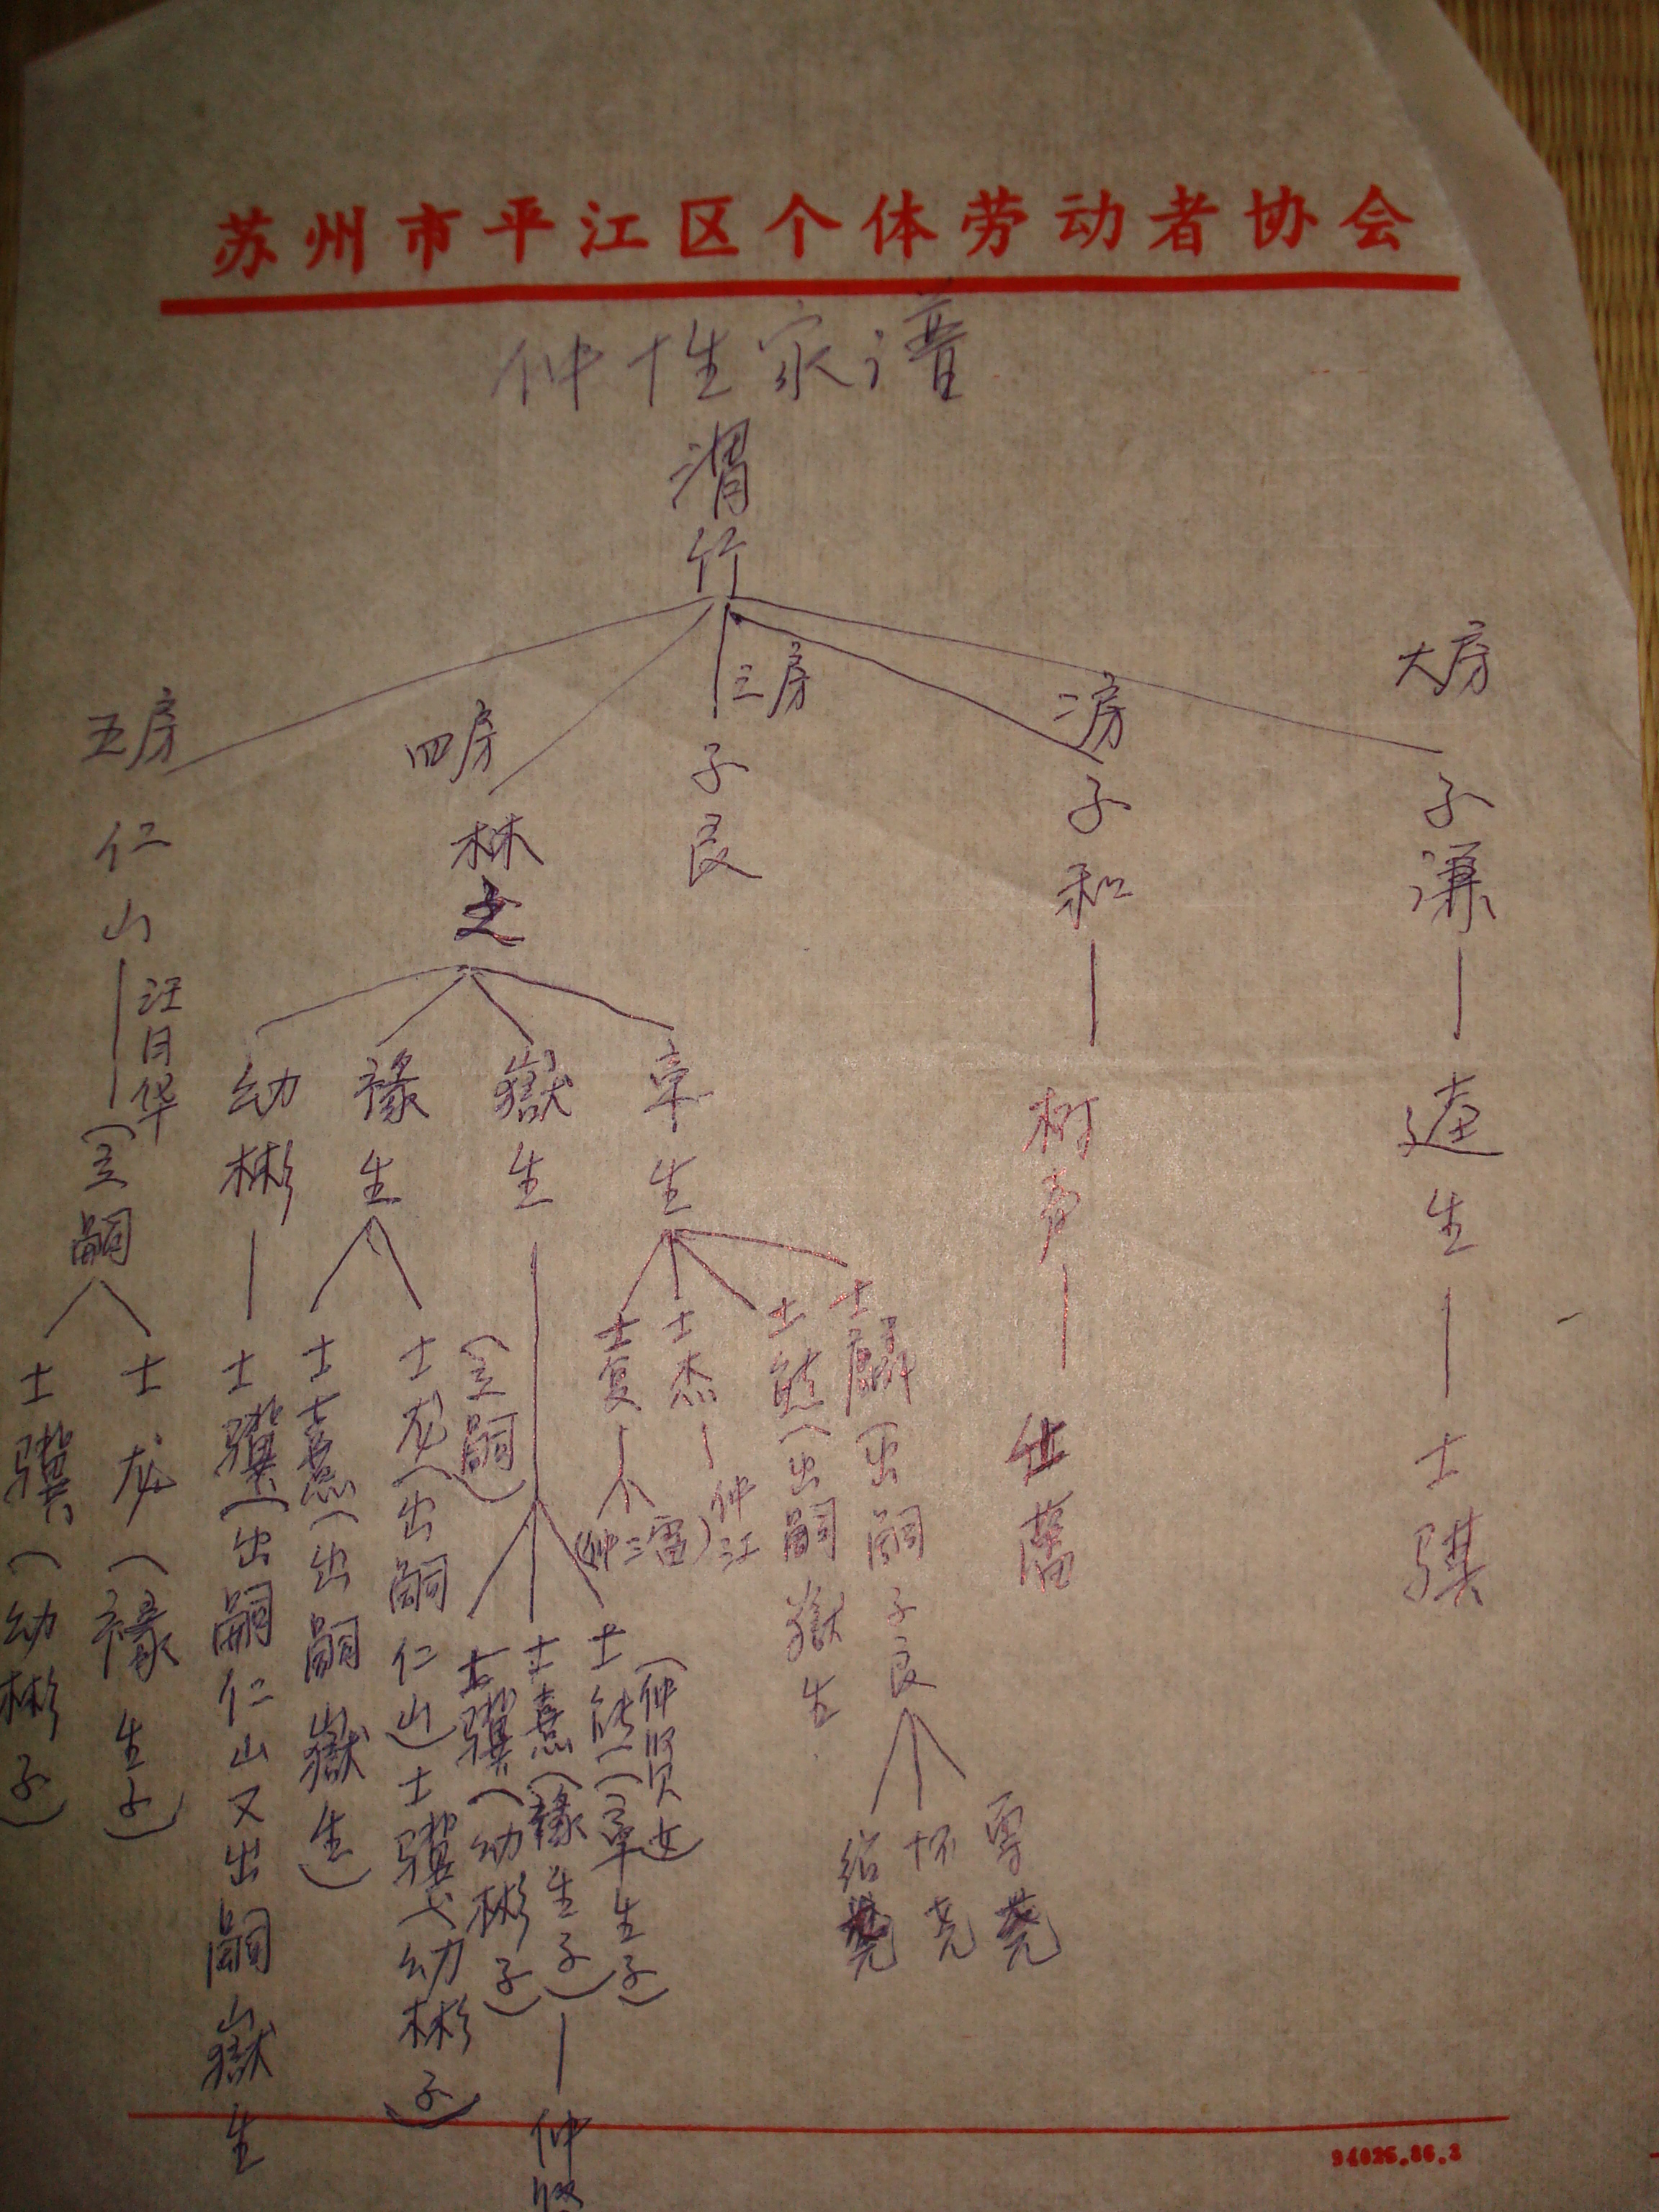 苏州市平江区个体劳动者协会
仲性家谱
渭竹
大房
子谦
逵生
士骐
二房
子和
树声
三房
子良
四房
林之
章生
士麟(出嗣子良
尊尧
怀尧
绍尧
士熊(出嗣嶽生
士杰
仲江
士复
(仲三雷)
嶽生
(立嗣)
士熊(章生子)
(仲贤女)
士熹(禄生子)
仲贤
士骥(幼彬子)
禄生
士龙(出嗣仁山)
士骥(幼彬子)
士熹(出嗣嶽生)
幼彬
士骥(出嗣仁山又出嗣嶽生
五房
仁山
汪月华
(立嗣
士龙(禄生子)
士骥(幼彬子)
94026.86.3